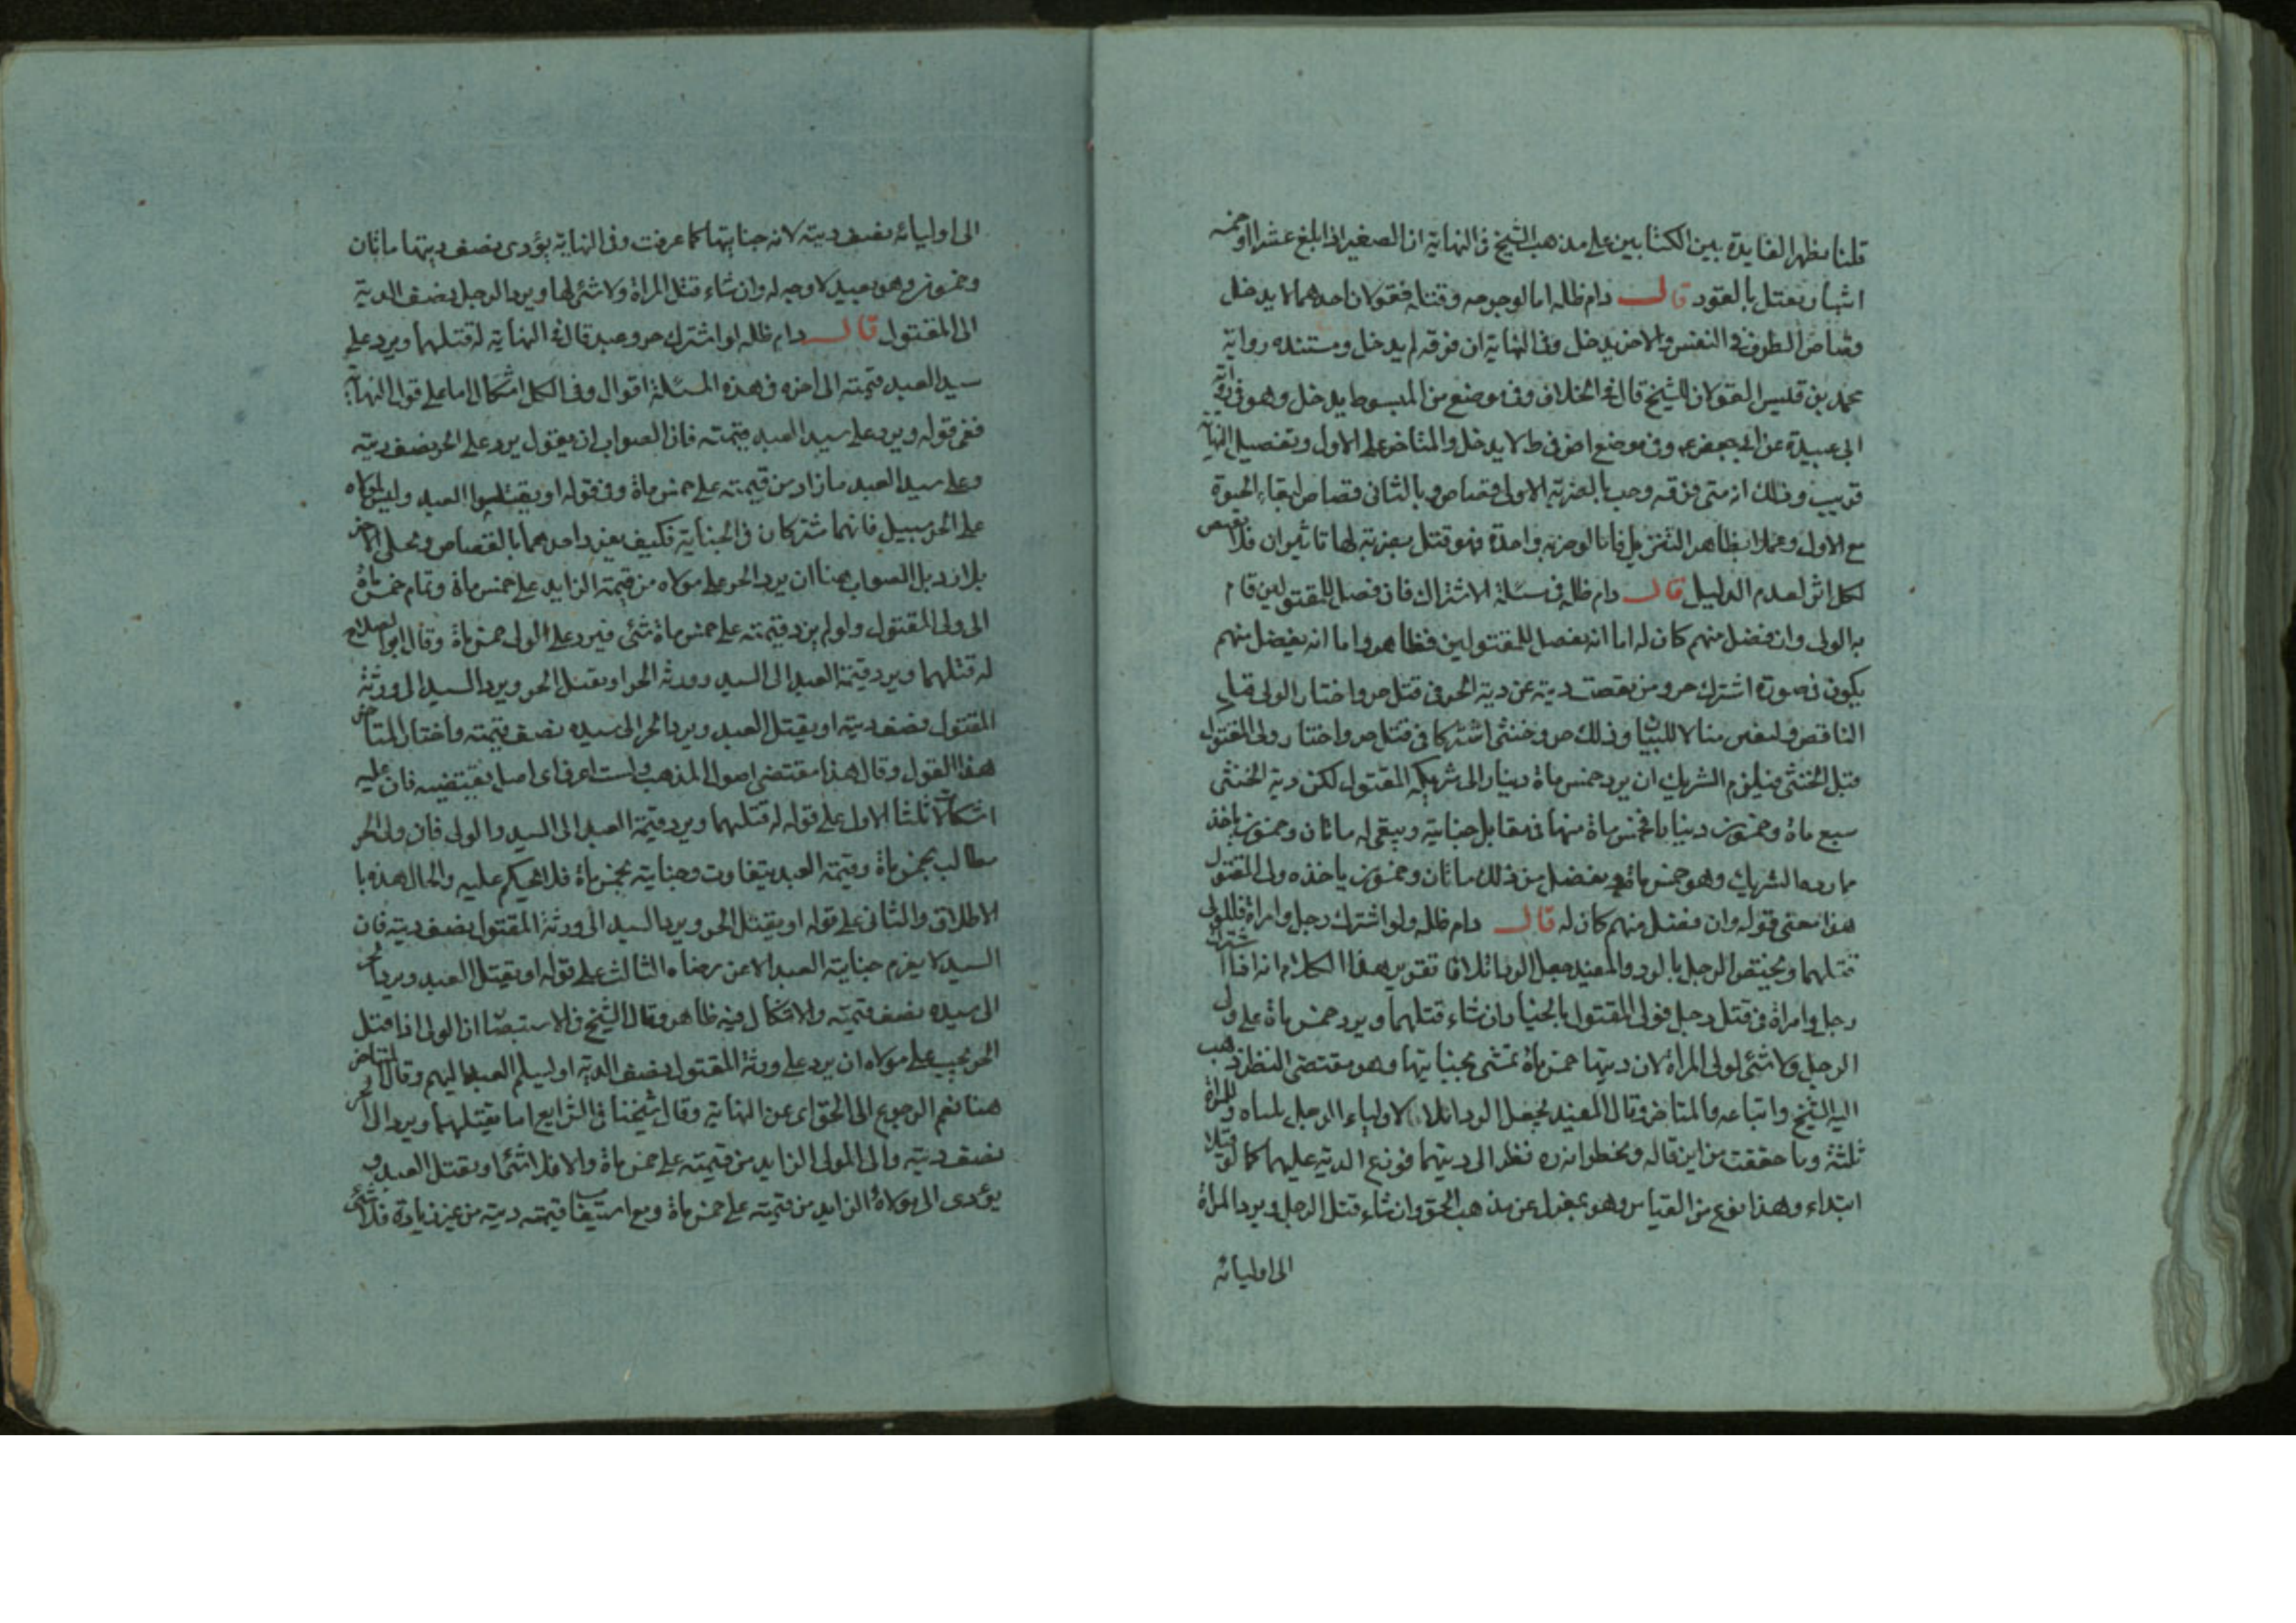 قلنا يظهر الفايدة بين الكتابين على مذهب الشيخ في النهاية ان الصغير اذا بلغ عشرا او خمسة
اشبار يقتل بالعقود قال دام ظله اما لو جرحه وقتله فقولان احدهما لا يدخل
قصاص الطرف في النفس والاخر يدخل وفي النهاية ان فرقه لم يدخل ومستنده رواية
محمد بن قيس القولان للشيخ قال في الخلاف وفي موضع من المبسوط يدخل وهو في رواية
ابي عبيدة عن ابي جعفر ع وفي موضع اخر في ط لا يدخل والمتاخر على الاول وتفصيل النهاية
قريب وذلك انه متى فرقه وجب بالضربة الاولى قصاص وبالثاني قصاص لبقاء الحيوة
مع الاول وعملا بظاهر التنزيل فاما لو ضربه واحدة فهو قتل بضربة لها تاثيران فلا يقتص
لكل اثر لعدم الدليل قال دام ظله في مسئلة الاشتراك فان فضل للمقتولين قام
به الولى وان فضل منهم كان له اما انه يفضل للمقتولين فظاهر واما انه يفضل منهم
يكون في صورة اشترك حر ومن نقصت ديته عن دية الحر في قتل حر واختار الولى قتل
الناقص فلنفرض مثالا للبيان وذلك حر وخنثى اشتركا في قتل حر واختار ولى المقتول
قتل الخنثى فيلزم الشريك ان يرد خمس ماة دينار الى شريكه المقتول لكن دية الخنثى
سبع ماة وخمسون دينارا فخمس ماة منها في مقابل جنايته ويبقى له ماتان وخمسون ياخذ
مما رده الشريك وهو خمس ماة ويفضل من ذلك ماتان وخمسون ياخذه ولى المقتول
هذا معنى قوله وان فضل منهم كان له قال دام ظله ولو اشترك رجل وامراة فللولى
قتلهما ويختص الرجل بالرد والمفيد جعل الرد اثلاثا تقرير هذا الكلام انه اذا اشترك
رجل وامراة في قتل رجل فولى المقتول بالخيار ان شاء قتلهما ويرد خمس ماة على ولى
الرجل ولا شئ لولى المراة لان ديتها خمس ماة تمشى بجنايتها وهو مقتضى النظر ذهب
اليه الشيخ واتباعه والمتاخر وقال المفيد يجعل الرد اثلاثا لاولياء الرجل ثلثاه وللمراة
ثلثه وما حققت من اين قاله ويخطر انه ره نظر الى ديتهما فوزع الدية عليهما كما لو قتلا
ابتداء وهذا نوع من القياس وهو بمعزل عن مذهب الحق وان شاء قتل الرجل ويرد المراة
الى اوليائه
الى اوليائه نصف ديته لانه جنايتها كما عرفت وفي النهاية يؤدى نصف ديتها ماتان
وخمسون وهو بعيد لا وجه له وان شاء قتل المراة ولا شئ لها ويرد الرجل نصف الدية
الى المقتول قال دام ظله لو اشترك حر وعبد قال في النهاية له قتلهما ويرد على
سيد العبد قيمته الى اخره في هذه المسئلة اقوال وفي الكل اشكال اما على قول النهاية
ففي قوله ويرد على سيد العبد قيمته فان الصواب ان يقول يرد على الحر نصف ديته
وعلى سيد العبد ما زاد من قيمته على خمس ماة وفي قوله او يقتلوا العبد وليس لمولاه
على الحر سبيل فانهما شتركان في الجناية فكيف يفرد احدهما بالقصاص ويخلى الاخر
بلا رد بل الصواب هنا ان يرد الحر على مولاه من قيمته الزايد على خمس ماة وتمام خمس ماة
الى ولى المقتول ولو لم يزد قيمته على خمس ماة شئ فيرد على الولى خمس ماة وقال ابو الصلاح
له قتلهما ويرد قيمة العبد الى السيد وورثة الحر او يقتل الحر ويرد السيد الى ورثة
المقتول نصف ديته او يقتل العبد ويرد الحر الى سيده نصف قيمته واختار المتاخر
هذا القول وقال هذا مقتضى اصول المذهب ولست اعرف اى اصل يقتضيه فان عليه
اشكالات ثلثا الاول على قوله له قتلهما ويرد قيمة العبد الى السيد والولى فان ولى الحر
مطالب بخمس ماة وقيمة العبد يتفاوت وجنايته بخمس ماة فلا يحكم عليه والحال هذه با
لاطلاق والثانى على قوله او يقتل الحر ويرد السيد الى ورثة المقتول نصف ديته فان
السيد لا يغرم جناية العبد الا عن رضاه الثالث على قوله او يقتل العبد ويرد الحر
الى سيده نصف قيمته والاشكال فيه ظاهر وقال الشيخ في الاستبصار ان الولى اذا قتل
الحر يجب على مولاه ان يرد على ورثة المقتول نصف الدية او يسلم العبد اليهم وقال المتاخر
هنا نعم الرجوع الى الحق اى عن النهاية وقال شيخنا في الشرايع اما يقتلهما ويرد الى الحر
نصف ديته والى المولى الزايد من قيمته على خمس ماة والا فلا شئ او يقتل العبد و
يؤدى الى مولاه الزايد من قيمته على خمس ماة ومع استيفا قيمته ديته من غير زيادة فلا شئ